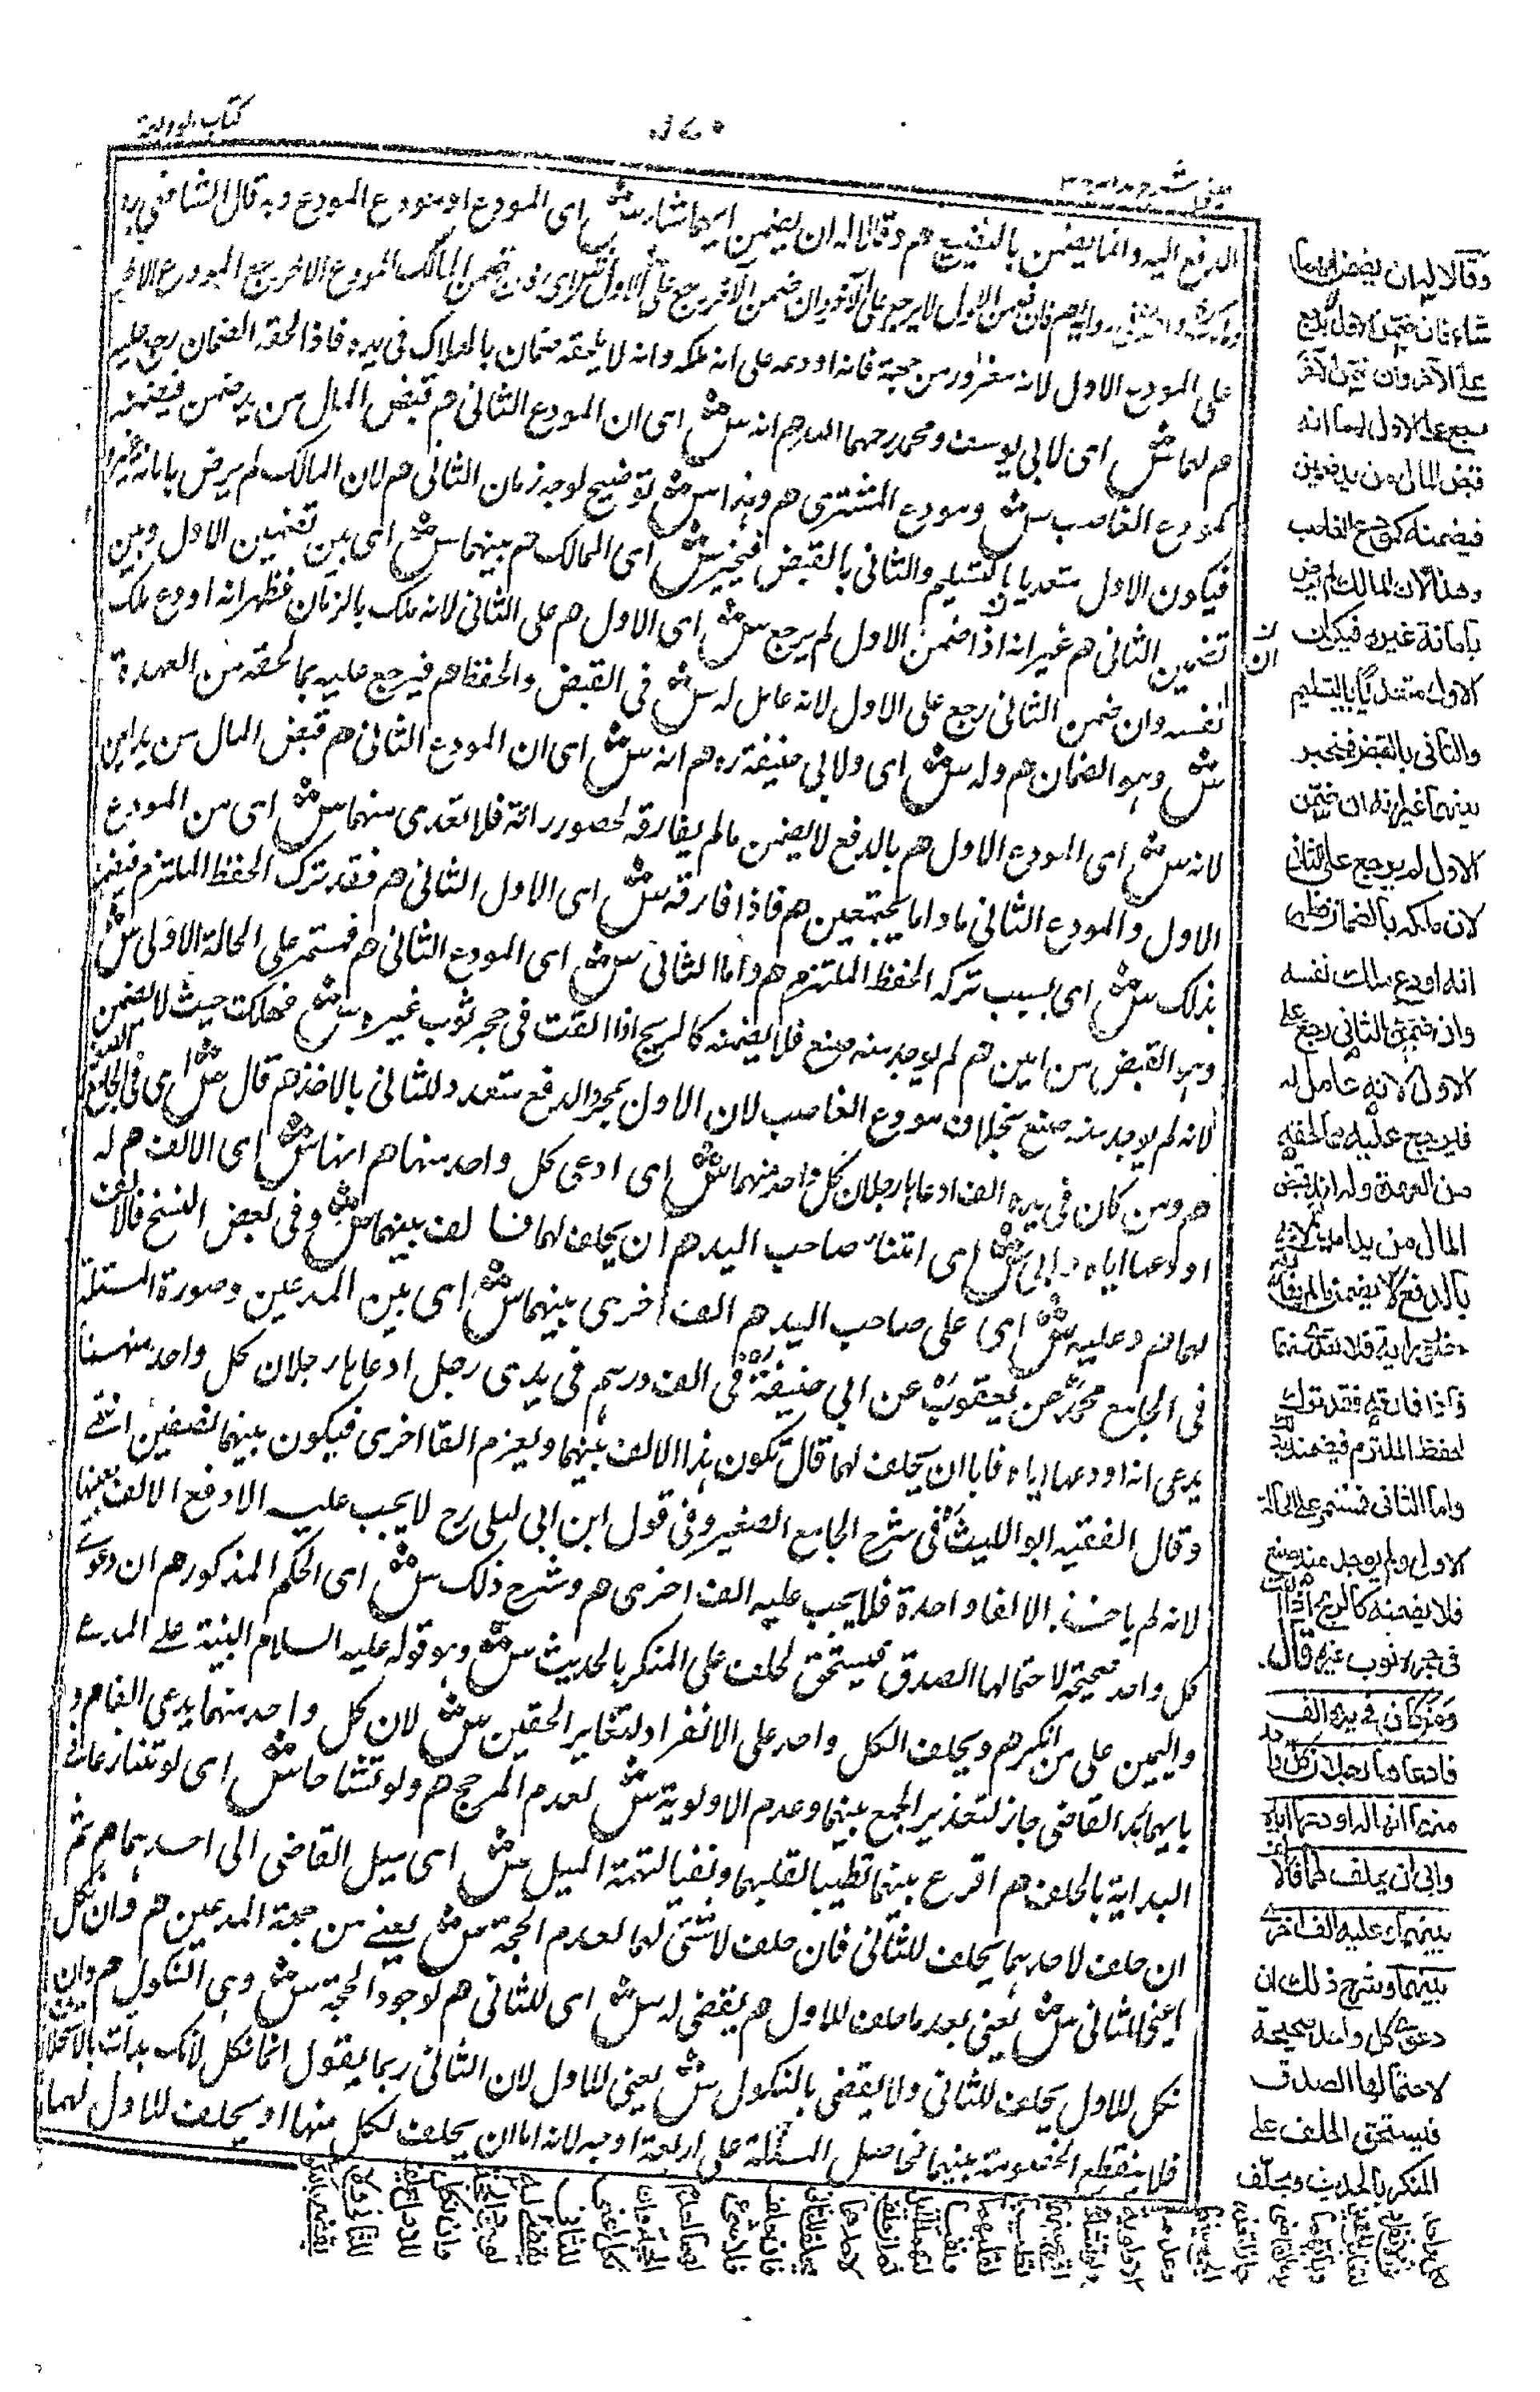 كتاب الوديعة
الدفع اليه وانما يضمن بالتضييع هم وقالا له ان يضمن ايهما شاء ش اى المودع او مودع المودع وبه قال الشافعى ره
هم فان ضمن الاول لا يرجع على الآخر وان ضمن الآخر رجع على الاول ش اى وان ضمن المالك المودع الآخر رجع المودع الآخر
على المودع الاول لانه مغرور من جهته فانه اودعه على انه ملكه وانه لا يلحقه ضمان بالهلاك فى يده فاذا لحقه الضمان رجع عليه
هم لهما ش اى لابى يوسف ومحمد رحمهما الله هم انه ش اى ان المودع الثانى هم قبض المال من يد ضمين فيضمنه
كمودع الغاصب ش ومودع المشترى هم وهذا ش توضيح لوجه زمان الثانى هم لان المالك لم يرض بامانة غيره
فيكون الاول متعديا بالتسليم والثانى بالقبض فيخير ش اى المالك هم بينهما ش اى بين تضمين الاول وبين
تضمين الثانى هم غير انه اذا ضمن الاول لم يرجع ش اى الاول هم على الثانى لانه ملك بالزمان فظهر انه اودع ملك
نفسه وان ضمن الثانى رجع على الاول لانه عامل له ش فى القبض والحفظ هم فيرجع عليه بما لحقه من العهدة
ش وهو الضمان هم وله ش اى ولابى حنيفة ره هم انه ش اى ان المودع الثانى هم قبض المال من يد امين
لانه ش اى المودع الاول هم بالدفع لا يضمن ما لم يفارقه لحضور رائه فلا تعدى منهما ش اى من المودع
الاول والمودع الثانى ما داما مجتمعين هم فاذا فارقه ش اى الاول الثانى هم فقد ترك الحفظ الملتزم فيضمنه
بذلك ش اى بسبب تركه الحفظ الملتزم هم واما الثانى ش اى المودع الثانى هم فمستمر على الحالة الاولى ش
وهو القبض من امين هم لم يوجد منه صنع فلا يضمنه كالريح اذا القت فى حجر ثوب غيره ش فهلكت حيث لا يضمن
لانه لم يوجد منه صنع بخلاف مودع الغاصب لان الاول بمجرد الدفع متعد وللثانى بالاخذ هم قال ش اى فى الجامع الصغير
هم ومن كان فى يده الف ادعاها رجلان كل واحد منهما ش اى ادعى كل واحد منهما هم انها ش اى الالف هم له
اودعها اياه وابى ش اى امتنع صاحب اليد هم ان يحلف لهما فا لف بينهما ش وفى بعض النسخ فالالف
لهما هم وعليه ش اى على صاحب اليد هم الف اخرى بينهما ش اى بين المدعين وصورة المسئلة
فى الجامع محمد عن يعقوب عن ابى حنيفة ره فى الف درهم فى يدى رجل ادعاها رجلان كل واحد منهما
يدعى انه اودعها اياه فابا ان يحلف لهما قال تكون هذا الالف بينهما ويغرم الفا اخرى فيكون بينهما نصفين انتهى
وقال الفقيه ابو الليث فى شرح الجامع الصغير وفى قول ابن ابى ليلى رح لا يجب عليه الا دفع الالف بعينها
لانه لم ياخذ الا الفا واحدة فلا يجب عليه الف اخرى هم وشرح ذلك ش اى الحكم المذكور هم ان دعوى
كل واحد صحيحة لاحتمالها الصدق فيستحق الحلف على المنكر بالحديث ش وهو قوله عليه السلام البينة على المدعى
واليمين على من انكر هم ويحلف الكل واحد على الانفراد لتغاير الحقين ش لان كل واحد منهما يدعى الفا هم و
بايهما بدا القاضى جاز لتعذير الجمع بينهما وعدم الاولوية ش لعدم المرجح هم ولو تشاحا ش اى لو تنازعا فى
البداية بالحلف هم اقرع بينهما تطييبا لقلبهما ونفيا لتهمة الميل ش اى ميل القاضى الى احدهما هم ثم
ان حلف لاحدهما يحلف للثانى فان حلف لا شئ لهما لعدم الحجة ش يعنى من جهة المدعين هم وان نكل
اعنى للثانى ش يعنى بعد ما حلف للاول هم يقضى له ش اى للثانى هم لوجود الحجة ش وهى النكول هم وان
نكل للاول يحلف للثانى ولا يقضى بالنكول ش يعنى للاول لان الثانى ربما يقول انما نكل لانك بدات بالاستحلاف
فلا ينقطع الخصومة بينهما فحاصل المسئلة على اربعة اوجه لانه اما ان يحلف لكل منهما او يحلف للاول
وقالا له ان يضمن ايهما
شاء فان ضمن الاول لا يرجع
على الآخر وان ضمن الآخر
رجع على الاول لهما انه
قبض المال من يد ضمين
فيضمنه كمودع الغاصب
وهذا لان المالك لم يرض
بامانة غيره فيكون
الاول متعديا بالتسليم
والثانى بالقبض فيخير
بينهما غير انه ان ضمن
الاول لم يرجع على الثانى
لانه ملكه بالضمان فظهر
انه اودع ملك نفسه
وان ضمن الثانى رجع على
الاول لانه عامل له
فيرجع عليه بما لحقه
من العهدة وله انه قبض
المال من يد امين لانه
بالدفع لا يضمن ما لم يفارقه
فلا تعدى منهما
فاذا فارقه فقد ترك
الحفظ الملتزم فيضمنه بذلك
واما الثانى فمستمر على الحالة
الاولى ولم يوجد منه صنع
فلا يضمنه كالريح اذا القت
فى حجره ثوب غيره قال
ومن كان فى يده الف
فادعاها رجلان كل واحد
منهما انها له اودعها اياه
وابى ان يحلف لهما فالالف
بينهما وعليه الف اخرى
بينهما وشرح ذلك ان
دعوى كل واحد صحيحة
لاحتمالها الصدق
فيستحق الحلف على
المنكر بالحديث ويحلف